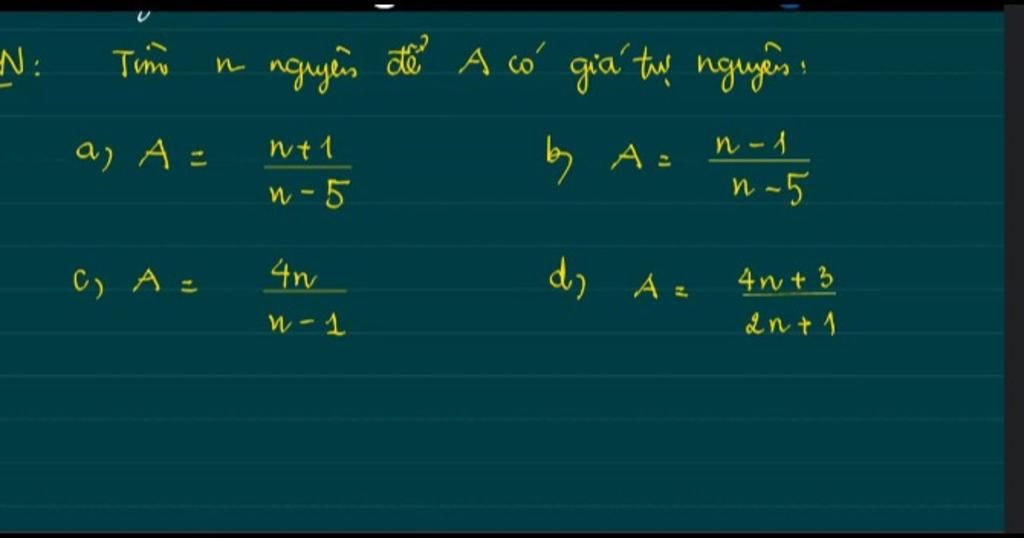 N: Tìm n nguyên để A có giá trị nguyên:
a) A = \frac{n+1}{n-5} b) A = \frac{n-1}{n-5}
c) A = \frac{4n}{n-1} d) A = \frac{4n+3}{2n+1}